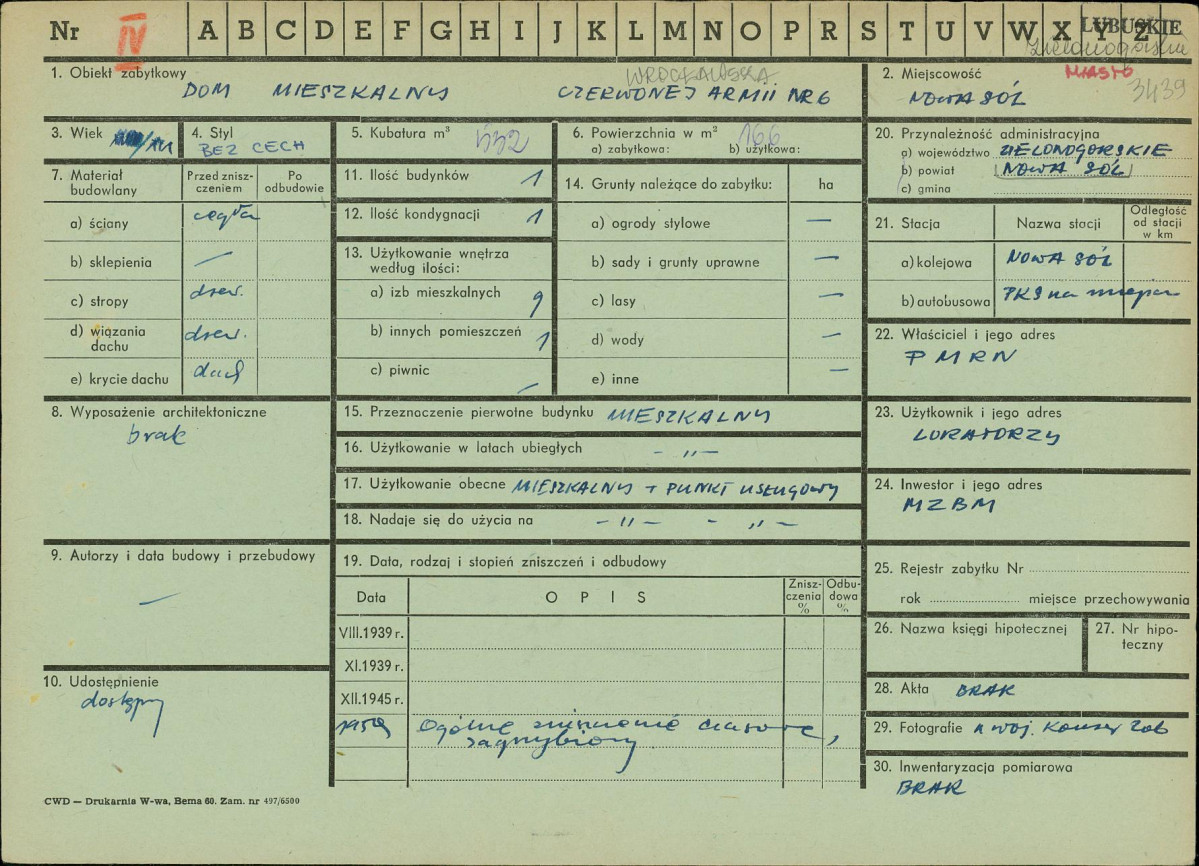 Nr IV A B C D E F G H I J K L M N O P R S T U V W X Y Z LUBUSKIE
Zielonogórskie
1. Obiekt zabytkowy WROCŁAWSKA
DOM MIESZKALNY CZERWONEJ ARMII NR 6
2. Miejscowość MIASTO 3439
NOWA SÓL
3. Wiek
4. Styl
BEZ CECH
5. Kubatura m³ 532
6. Powierzchnia w m² 166
a) zabytkowa: b) użytkowa:
7. Materiał budowlany
Przed znisz-
czeniem
Po
odbudowie
a) ściany cegła
b) sklepienia —
c) stropy drew.
d) wiązania
dachu drew.
e) krycie dachu dach
8. Wyposażenie architektoniczne
brak
9. Autorzy i data budowy i przebudowy
—
10. Udostępnienie
dostępny
11. Ilość budynków 1
12. Ilość kondygnacji 1
13. Użytkowanie wnętrza
według ilości:
a) izb mieszkalnych 9
b) innych pomieszczeń 1
c) piwnic —
14. Grunty należące do zabytku: ha
a) ogrody stylowe —
b) sady i grunty uprawne —
c) lasy —
d) wody —
e) inne —
15. Przeznaczenie pierwotne budynku MIESZKALNY
16. Użytkowanie w latach ubiegłych - „ -
17. Użytkowanie obecne MIESZKALNY + PUNKT USŁUGOWY
18. Nadaje się do użycia na - „ - - „ -
19. Data, rodzaj i stopień zniszczeń i odbudowy
Data O P I S Znisz-
czenia
% Odbu-
dowa
%
VIII.1939 r.
XI.1939 r.
XII.1945 r.
Ogólne zniszczenie czasowe,
zagrzybiony
20. Przynależność administracyjna
a) województwo ZIELONOGÓRSKIE
b) powiat NOWA SÓL
c) gmina
21. Stacja Nazwa stacji Odległość
od stacji
w km
a) kolejowa NOWA SÓL
b) autobusowa PKS na miejscu
22. Właściciel i jego adres
PMRN
23. Użytkownik i jego adres
LOKATORZY
24. Inwestor i jego adres
MZBM
25. Rejestr zabytku Nr
rok miejsce przechowywania
26. Nazwa księgi hipotecznej
27. Nr hipo-
teczny
28. Akta BRAK
29. Fotografie u woj. Konserw Zab
30. Inwentaryzacja pomiarowa
BRAK
CWD — Drukarnia W-wa, Bema 60. Zam. nr 497/6500